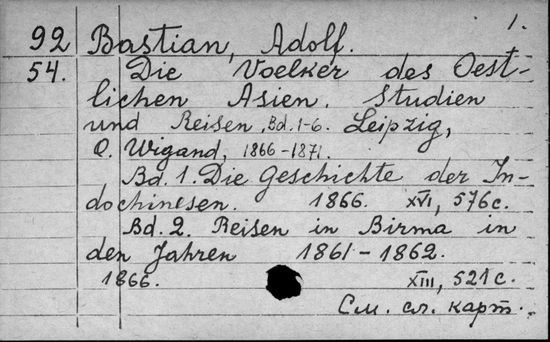 1.
92 Bastian, Adolf.
54. Die Voelker des Oest-
lichen Asien. Studien
und Reisen, Bd. 1-6. Leipzig,
O. Wigand, 1866-1871.
Bd. 1. Die Geschichte der In-
dochinesen. 1866. XVI, 576c.
Bd. 2. Reisen in Birma in
den Jahren 1861-1862.
1866. XIII, 521c.
См. сл. карт.